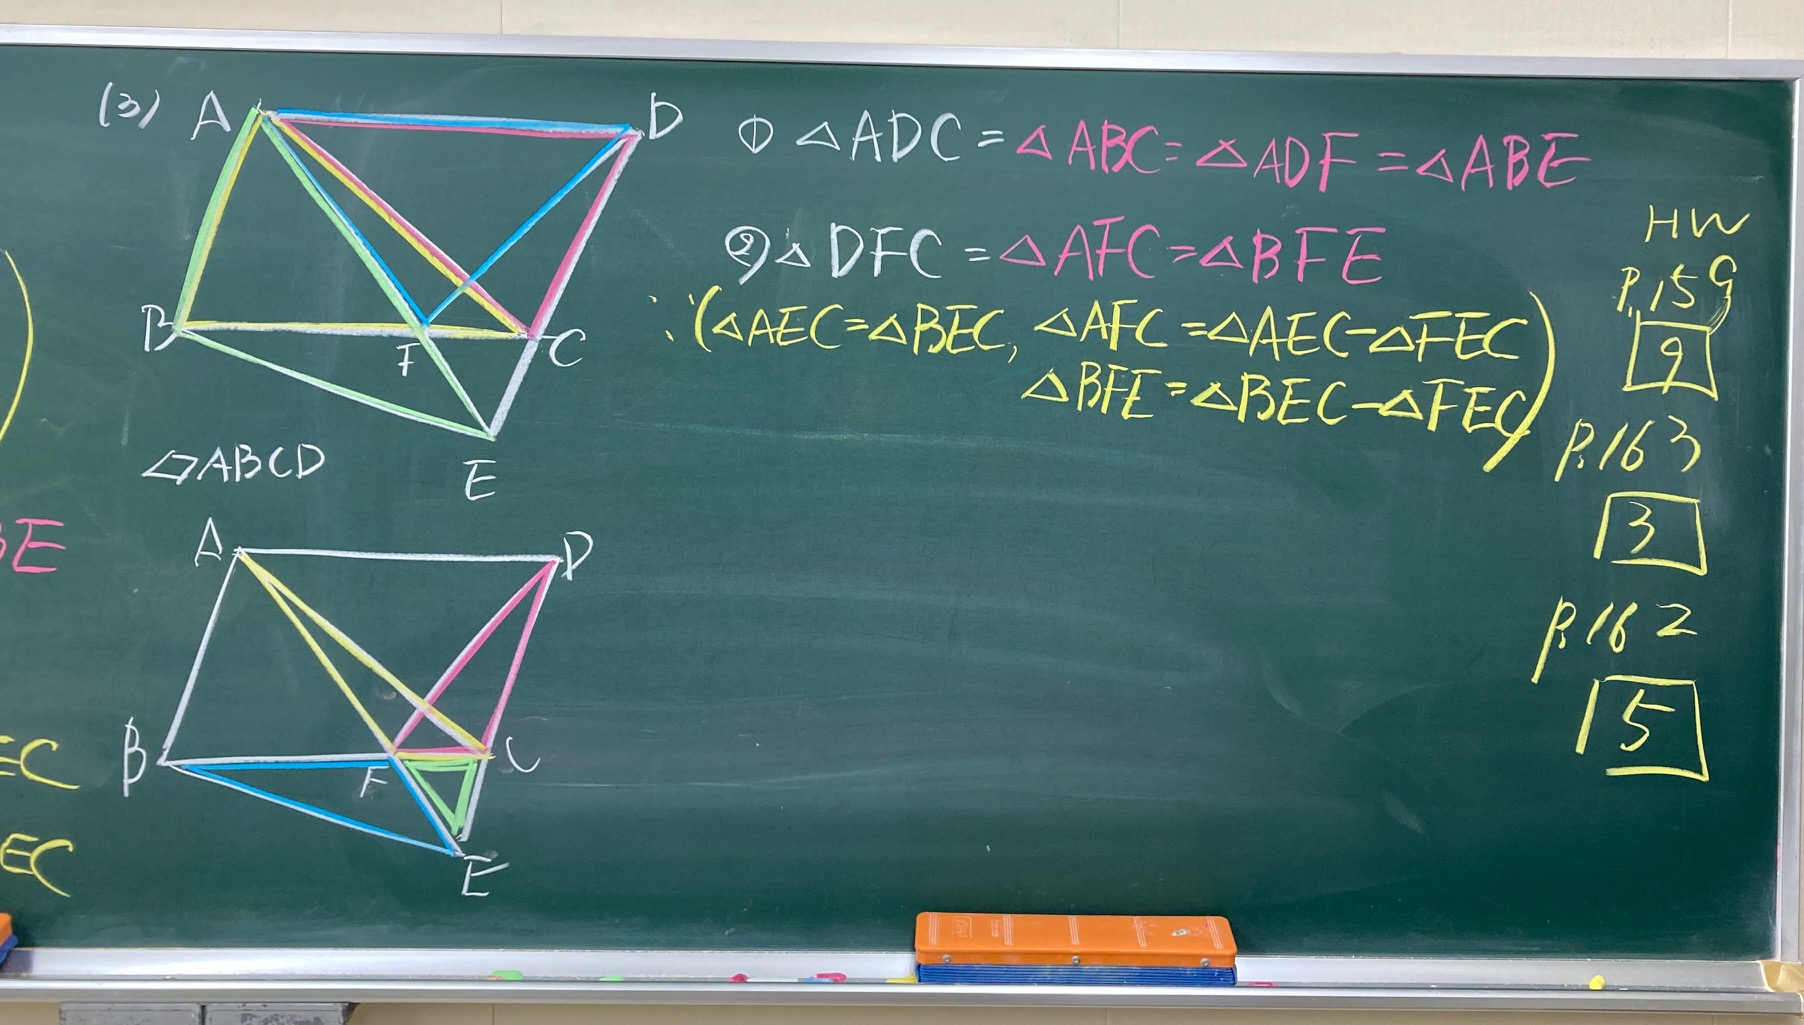 (3)
A
D
B
F
C
E
▱ABCD
A
D
B
F
C
E
① △ADC = △ABC = △ADF = △ABE
② △DFC = △AFC = △BFE
∵(△AEC = △BEC, △AFC = △AEC - △FEC
△BFE = △BEC - △FEC)
HW
P.159
9
P.163
3
P.162
5
)
BE
EC
EC